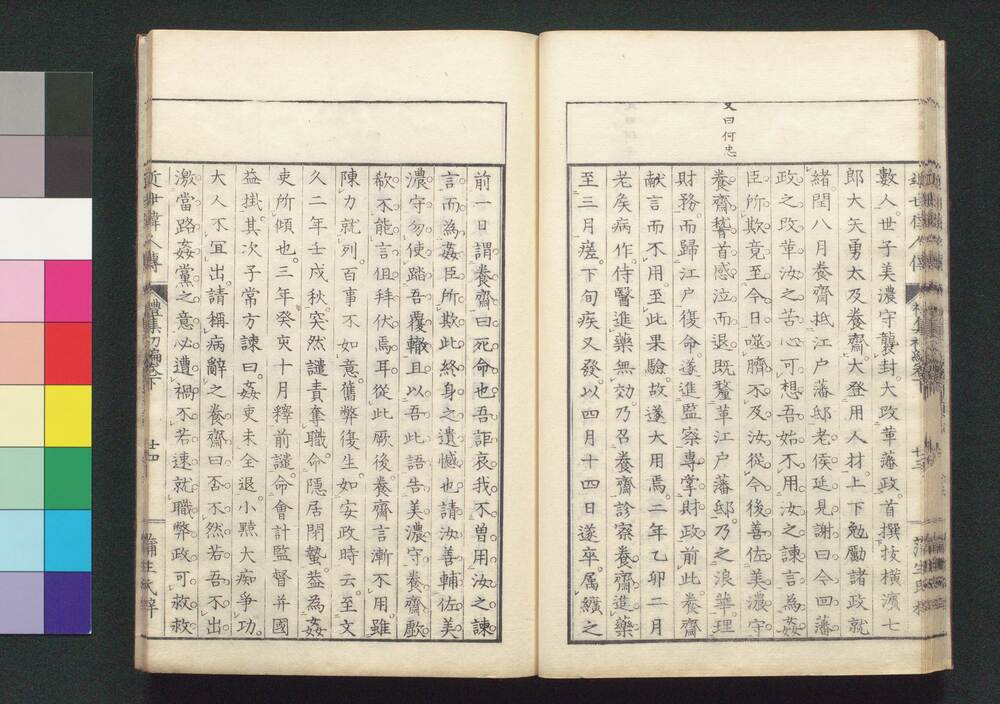 又曰何忠
數人世子美濃守襲封大政革藩政首撰拔橫濱七
郎大矢勇太及養齋大登用人材上下勉勵諸政就
緒閏八月養齋抵江戶藩邸老侯延見謝曰今回藩
政之改革汝之苦心可想吾始不用汝之諫言為姦
臣所欺竟至今日噬臍不及汝從今後善佐美濃守
養齋稽首感泣而退既釐革江戶藩邸乃之浪華理
財務而歸江戶復命遂進監察專掌財政前此養齋
献言而不用至此果驗故遂大用焉二年乙卯二月
老矦病作侍醫進藥無効乃召養齋診察養齋進藥
至三月瘥下旬疾又發以四月十四日遂卒属纊之
前一日謂養齋曰死命也吾詎哀我不曽用汝之諫
言而為姦臣所欺此終身之遺憾也請汝善輔佐美
濃守勿使踏吾覆轍且以吾此語告美濃守養齋歔
欷不能言伹拜伏焉耳從此厥後養齋言漸不用雖
陳力就列百事不如意舊弊復生如安政時云至文
久二年壬戍秋突然譴責奪職命隱居閉蟄益為姦
吏所傾也三年癸亥十月釋前譴命會計監督并國
益掛其次子常方諫曰姦吏未全退小黠大痴爭功
大人不宜出請稱病辭之養齋曰否不然若吾不出
激當路姦黨之意必遭禍不若速就職弊政可救救
近世偉人傳
禮集初編卷下
廿四
蒲生氏梓